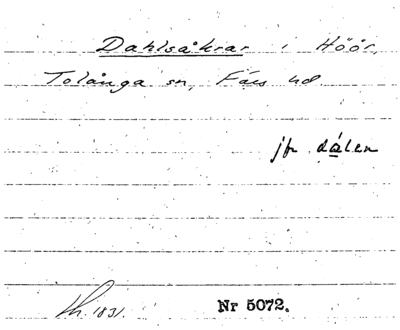 Dahlsåkrar i Höör,
Tolånga sn, Färs hd
jfr dålen
1831.
Nr 5072.